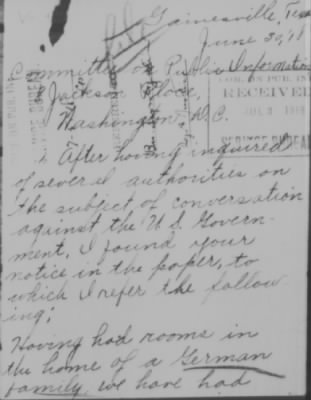 Gainesville, Texas
June 30, '18
Committee on Public Information
Jackson Place,
Washington D.C.
RECEIVED
After having inquired
of several authorities on
the subject of conversation
against the U.S. Govern-
ment, I found your
notice in the paper, to
which I refer the follow
ing;
Having had rooms in
the home of a German
family, we have had